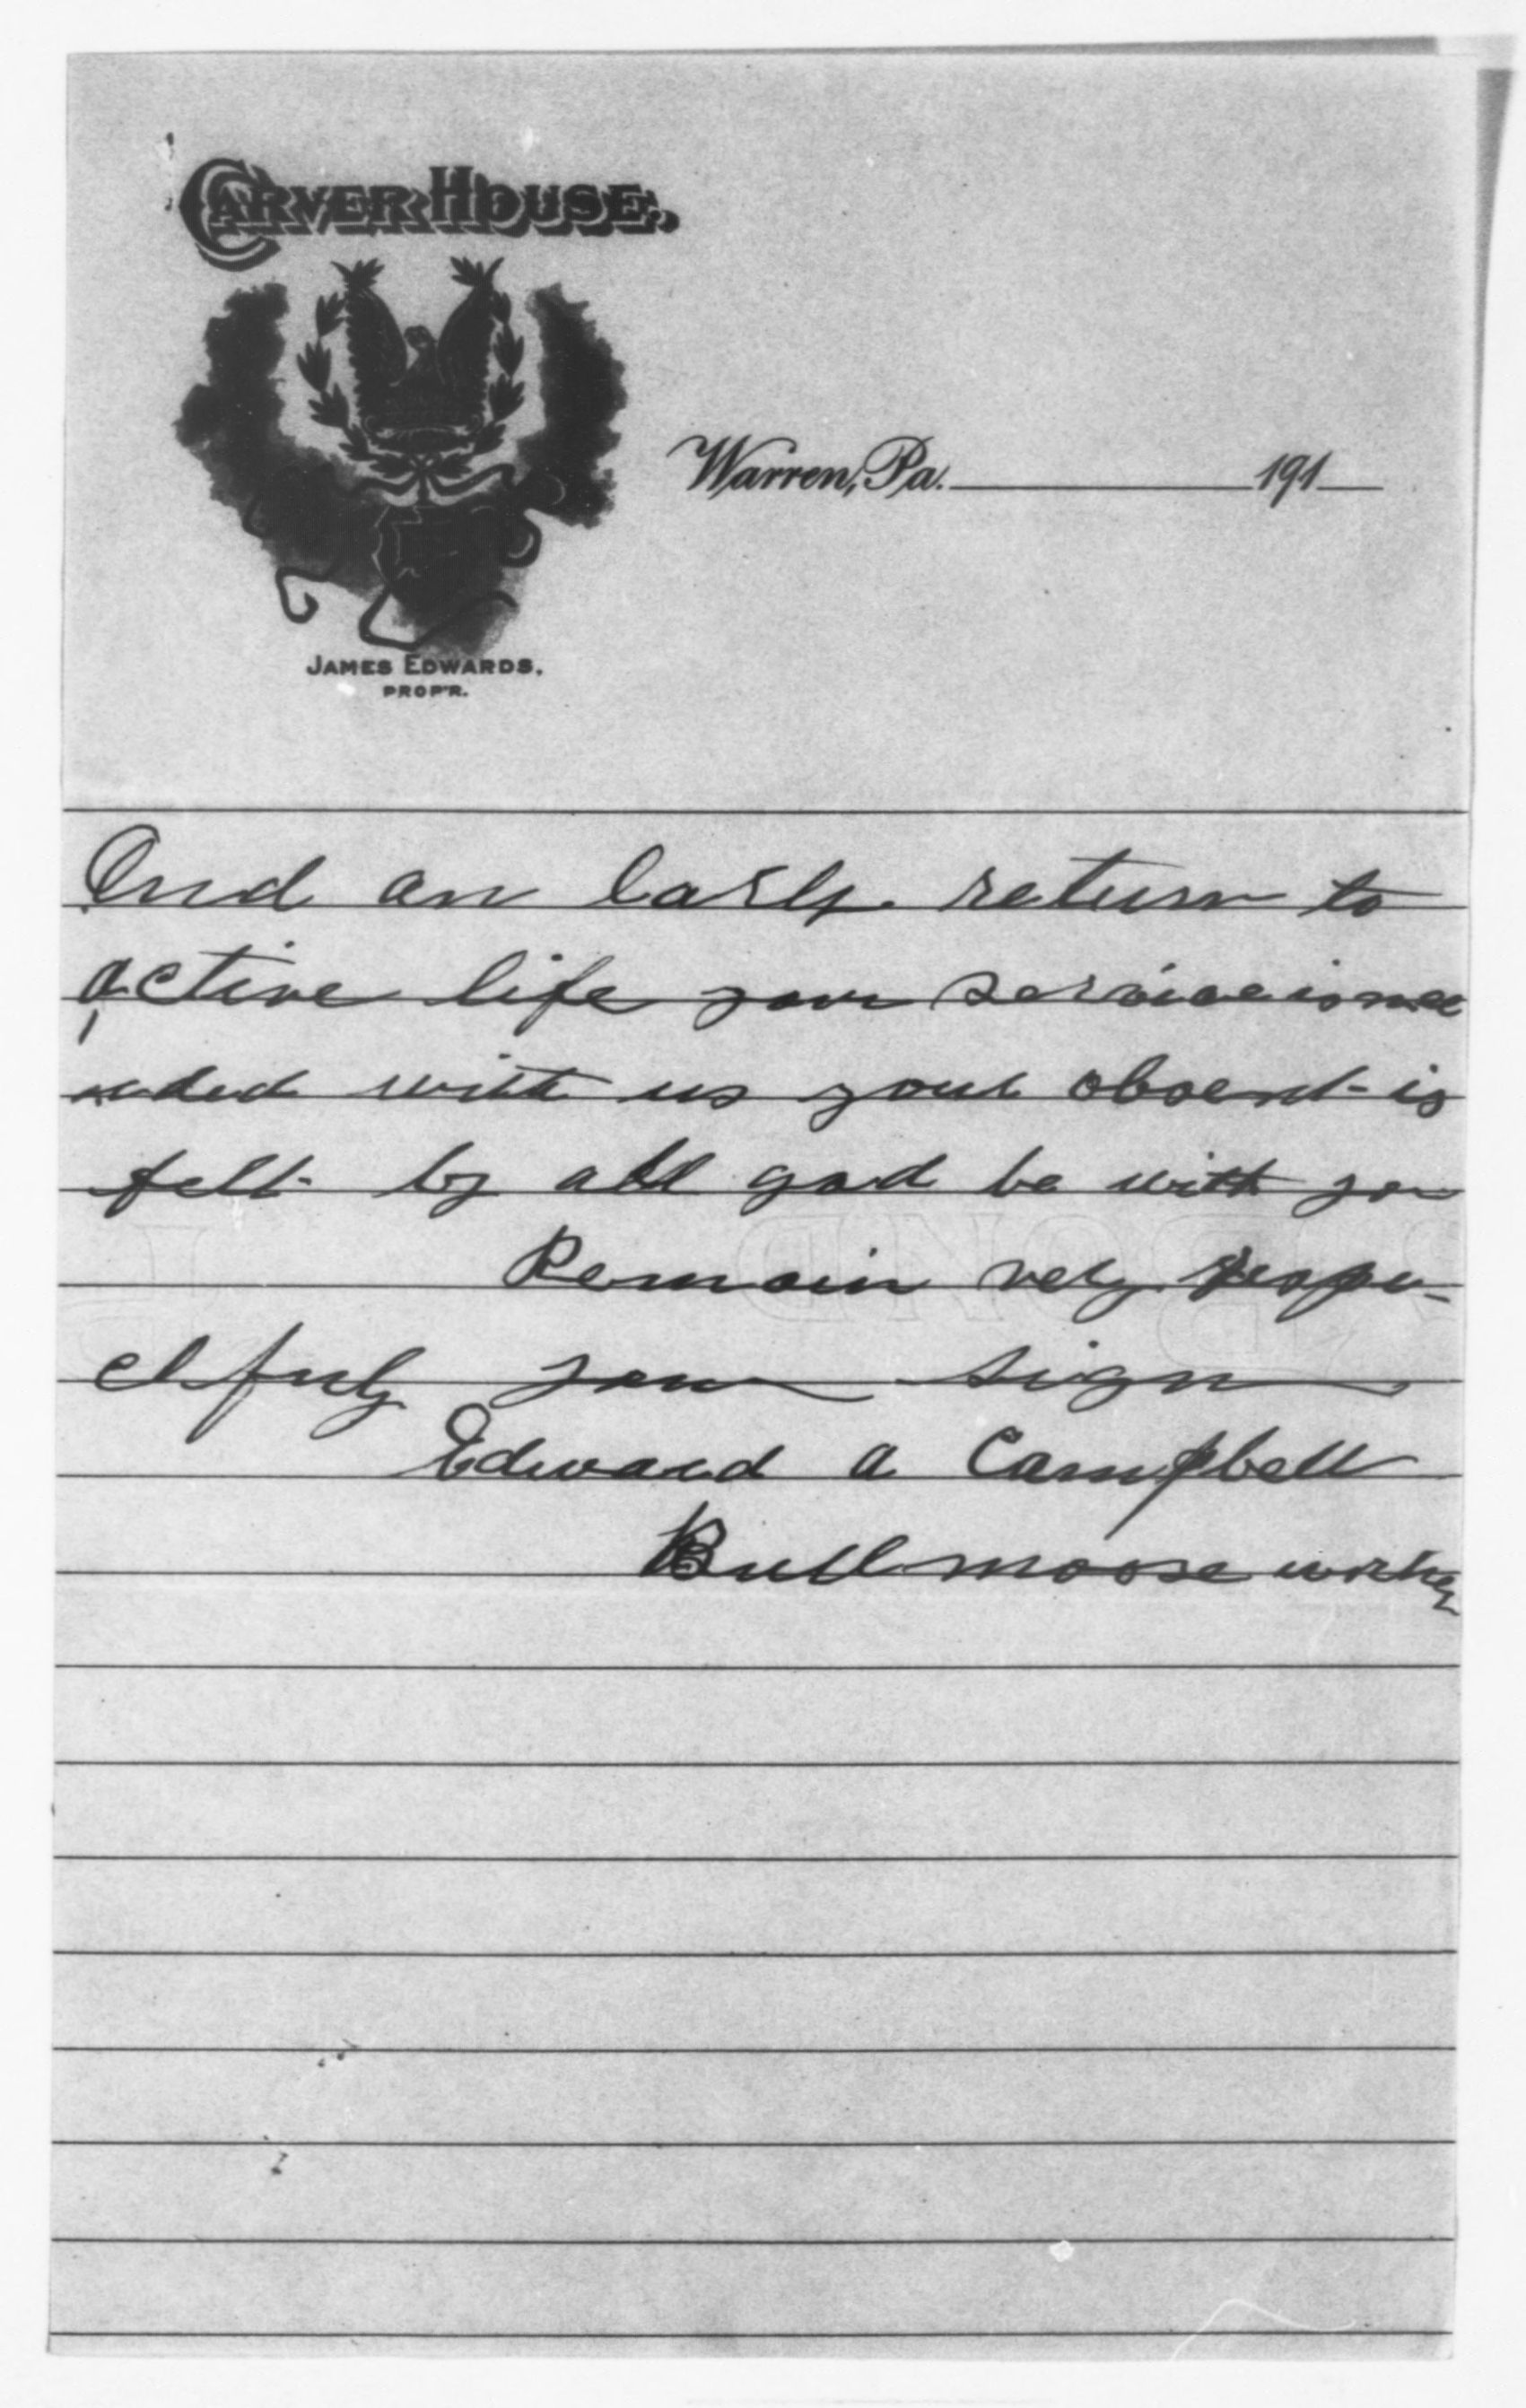 CARVER HOUSE,
Warren, Pa. 191
JAMES EDWARDS,
PROP'R.
And an early return to
active life your service is nee
nded with us your absent is
felt by all god be with you
Remain very respe-
ctfuly your sign
Edward a Campbell
Bull moose worker
BOND